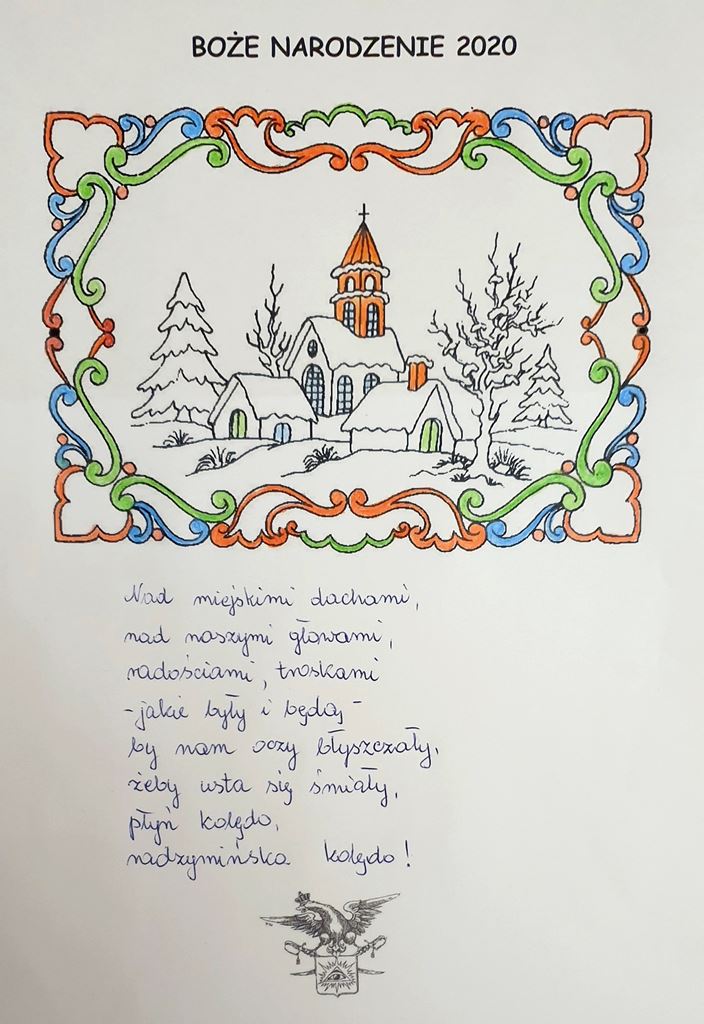 BOŻE NARODZENIE 2020
Nad miejskimi dachami,
nad naszymi głowami,
radościami, troskami
-jakie były i będą-
by nam oczy błyszczały,
żeby usta się śmiały,
płyń kolędo,
nadzymińska kolędo!